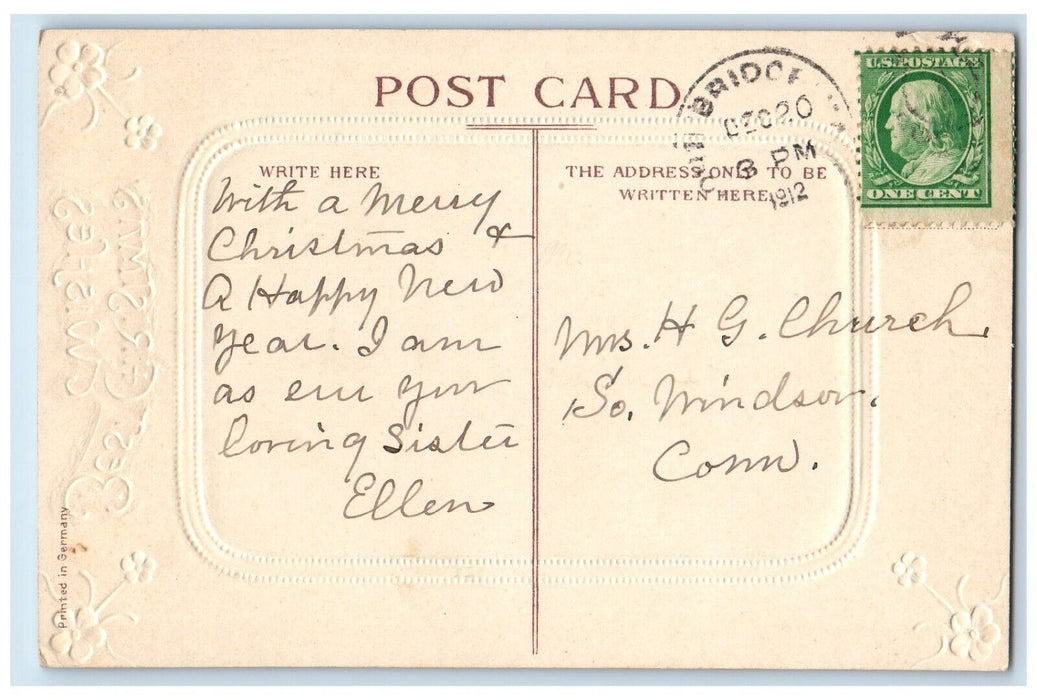 POST CARD
BRIDGE
DEC 20
3 PM
1912
U.S. POSTAGE
ONE CENT
WRITE HERE
THE ADDRESS ONLY TO BE
WRITTEN HERE
With a Merry
Christmas &
A Happy New
Year. I am
as ever your
loving Sister
Ellen
Mrs. H G. Church.
So. Windsor.
Conn.
Printed in Germany